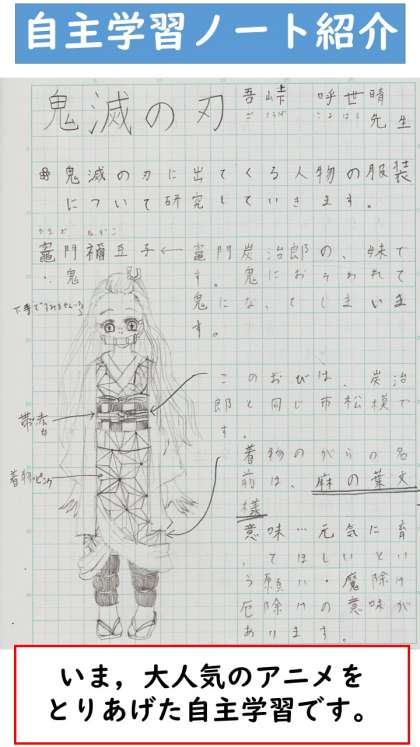 自主学習ノート紹介
鬼滅の刃
吾峠 呼世晴
先生
鬼滅の刃に出てくる人物の服装
について研究していきます。
竈門禰豆子← 竈門炭治郎の、妹で
・鬼
す。鬼におそわれて
鬼になってしまいま
す。
このおびは、炭治
郎と同じ市松模で
す。
帯・赤
着物・ピンク
着物のがらの名
前は、麻の葉文
様
意味…元気に育
ってほしいとい
う願い・魔除け
厄除けの意味が
あります。
いま，大人気のアニメを
とりあげた自主学習です。